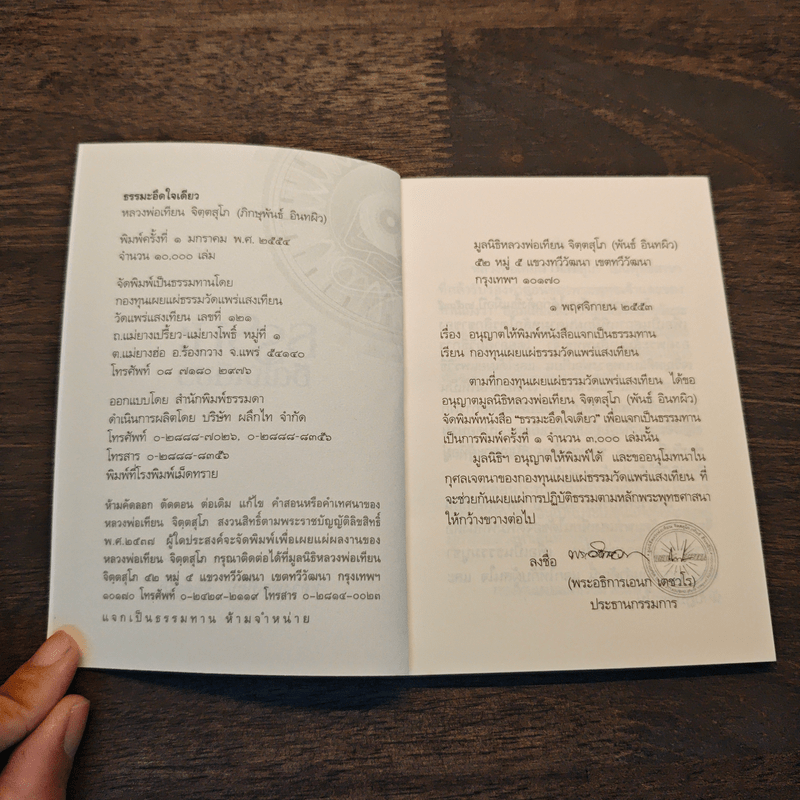 ธรรมะอึดใจเดียว
หลวงพ่อเทียน จิตฺตสุโภ (ภิกษุพันธ์ อินทผิว)
พิมพ์ครั้งที่ ๑ มกราคม พ.ศ. ๒๕๕๔
จำนวน ๑๐,๐๐๐ เล่ม
จัดพิมพ์เป็นธรรมทานโดย
กองทุนเผยแผ่ธรรมวัดแพร่แสงเทียน
วัดแพร่แสงเทียน เลขที่ ๑๒๑
ถ.แม่ยางเปรี้ยว-แม่ยางโพธิ์ หมู่ที่ ๑
ต.แม่ยางฮ่อ อ.ร้องกวาง จ.แพร่ ๕๔๑๔๐
โทรศัพท์ ๐๘ ๗๑๘๐ ๒๙๗๖
ออกแบบโดย สำนักพิมพ์ธรรมดา
ดำเนินการผลิตโดย บริษัท ผลึกไท จำกัด
โทรศัพท์ ๐-๒๘๘๘-๗๐๒๖, ๐-๒๘๘๘-๘๓๕๖
โทรสาร ๐-๒๘๘๘-๘๓๕๖
พิมพ์ที่โรงพิมพ์เม็ดทราย
ห้ามคัดลอก ตัดตอน ต่อเติม แก้ไข คำสอนหรือคำเทศนาของ
หลวงพ่อเทียน จิตฺตสุโภ สงวนสิทธิ์ตามพระราชบัญญัติลิขสิทธิ์
พ.ศ.๒๕๓๗ ผู้ใดประสงค์จะจัดพิมพ์เพื่อเผยแผ่ผลงานของ
หลวงพ่อเทียน จิตฺตสุโภ กรุณาติดต่อได้ที่มูลนิธิหลวงพ่อเทียน
จิตฺตสุโภ ๕๒ หมู่ ๕ แขวงทวีวัฒนา เขตทวีวัฒนา กรุงเทพฯ
๑๐๑๗๐ โทรศัพท์ ๐-๒๔๒๙-๒๑๑๙ โทรสาร ๐-๒๘๑๔-๐๐๒๓
แจกเป็นธรรมทาน ห้ามจำหน่าย
มูลนิธิหลวงพ่อเทียน จิตฺตสุโภ (พันธ์ อินทผิว)
๕๒ หมู่ ๕ แขวงทวีวัฒนา เขตทวีวัฒนา
กรุงเทพฯ ๑๐๑๗๐
๑ พฤศจิกายน ๒๕๕๓
เรื่อง อนุญาตให้พิมพ์หนังสือแจกเป็นธรรมทาน
เรียน กองทุนเผยแผ่ธรรมวัดแพร่แสงเทียน
ตามที่กองทุนเผยแผ่ธรรมวัดแพร่แสงเทียน ได้ขอ
อนุญาตมูลนิธิหลวงพ่อเทียน จิตฺตสุโภ (พันธ์ อินทผิว)
จัดพิมพ์หนังสือ “ธรรมะอึดใจเดียว” เพื่อแจกเป็นธรรมทาน
เป็นการพิมพ์ครั้งที่ ๑ จำนวน ๓,๐๐๐ เล่มนั้น
มูลนิธิฯ อนุญาตให้พิมพ์ได้ และขออนุโมทนาใน
กุศลเจตนาของกองทุนเผยแผ่ธรรมวัดแพร่แสงเทียน ที่
จะช่วยกันเผยแผ่การปฏิบัติธรรมตามหลักพระพุทธศาสนา
ให้กว้างขวางต่อไป
ลงชื่อ
(พระอธิการเอนก เตชวโร)
ประธานกรรมการ